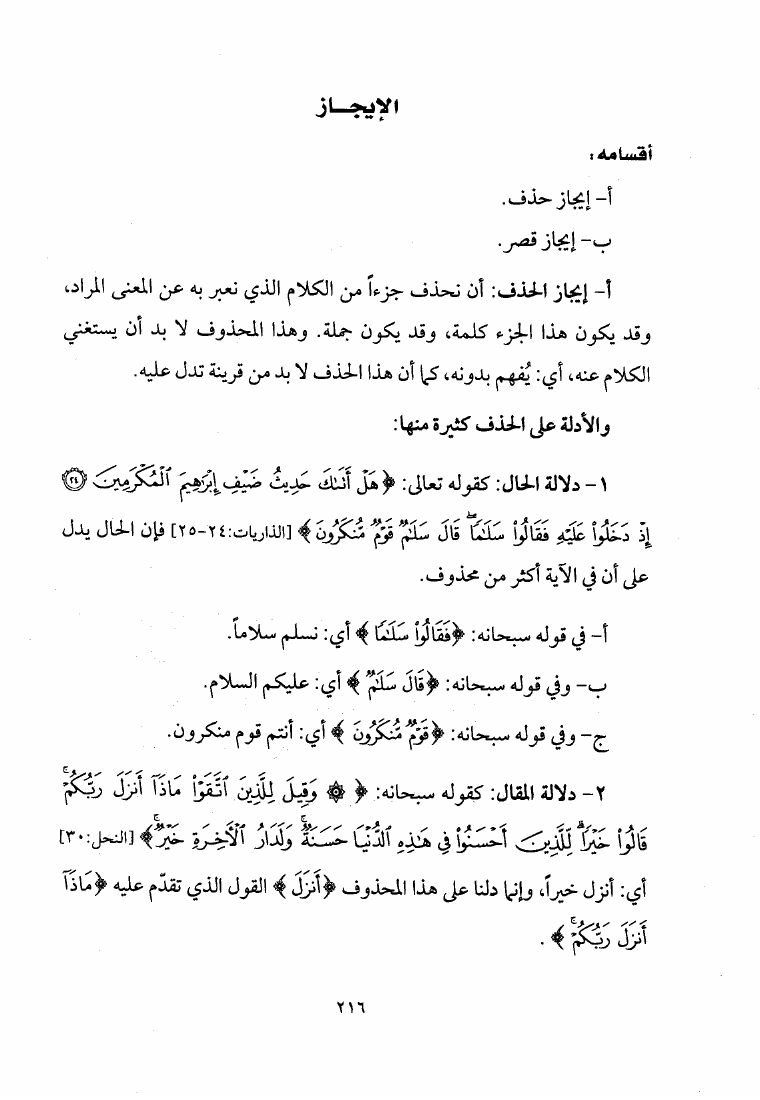 الإيجــاز
أقسامه:
أ- إيجاز حذف.
ب- إيجاز قصر.
أ- إيجاز الحذف: أن نحذف جزءاً من الكلام الذي نعبر به عن المعنى المراد،
وقد يكون هذا الجزء كلمة، وقد يكون جملة. وهذا المحذوف لا بد أن يستغني
الكلام عنه، أي: يُفهم بدونه، كما أن هذا الحذف لا بد من قرينة تدل عليه.
والأدلة على الحذف كثيرة منها:
١- دلالة الحال: كقوله تعالى: ﴿هَلْ أَتَىٰكَ حَدِيثُ ضَيْفِ إِبْرَٰهِيمَ ٱلْمُكْرَمِينَ ۝٢٤
إِذْ دَخَلُوا۟ عَلَيْهِ فَقَالُوا۟ سَلَٰمًا ۖ قَالَ سَلَٰمٌ قَوْمٌ مُّنكَرُونَ ﴾ [الذاريات:٢٤-٢٥] فإن الحال يدل
على أن في الآية أكثر من محذوف.
أ- في قوله سبحانه: ﴿فَقَالُوا۟ سَلَٰمًا ﴾ أي: نسلم سلاماً.
ب- وفي قوله سبحانه: ﴿قَالَ سَلَٰمٌ ﴾ أي: عليكم السلام.
ج- وفي قوله سبحانه: ﴿قَوْمٌ مُّنكَرُونَ ﴾ أي: أنتم قوم منكرون.
٢- دلالة المقال: كقوله سبحانه: ﴿ ۞ وَقِيلَ لِلَّذِينَ ٱتَّقَوْا۟ مَاذَآ أَنزَلَ رَبُّكُمْ ۚ
قَالُوا۟ خَيْرًا ۗ لِّلَّذِينَ أَحْسَنُوا۟ فِى هَٰذِهِ ٱلدُّنْيَا حَسَنَةٌ ۚ وَلَدَارُ ٱلْأَخِرَةِ خَيْرٌ ۚ﴾ [النحل:٣٠]
أي: أنزل خيراً، وإنما دلنا على هذا المحذوف ﴿أَنزَلَ ﴾ القول الذي تقدّم عليه ﴿مَاذَآ
أَنزَلَ رَبُّكُمْ ۚ ﴾ .
٢١٦